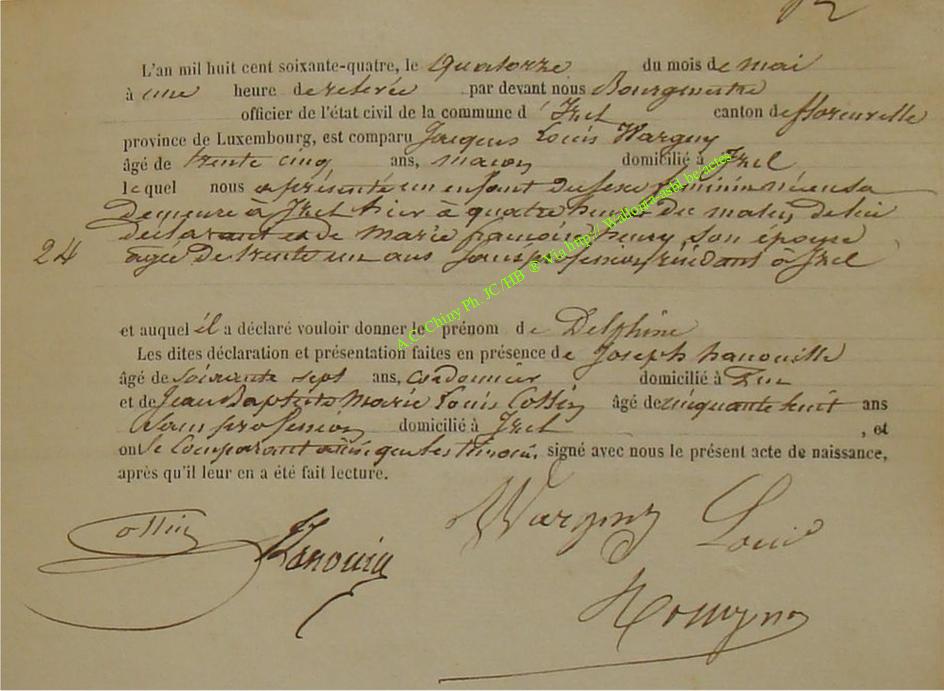 L'an mil huit cent soixante-quatre, le quatorze du mois de mai
à une heure de relevée par devant nous Bourgmestre
officier de l'état civil de la commune d'Izel canton de florenville
province de Luxembourg, est comparu Jacques Louis Wargny
âgé de trente cinq ans, maçon domicilié à Izel
lequel nous a présenté un enfant du sexe feminin né en sa
demeure à Izel hier à quatre heures du matin, de lui
déclarant et de Marie françoise henry son épouse
24 agée de trente un ans sans profession, résidant à Izel
et auquel il a déclaré vouloir donner le prénom de Delphine
Les dites déclaration et présentation faites en présence de Joseph hanouille
âgé de soixante sept ans, cordonnier domicilié à Izel
et de Jean Baptiste Marie Louis Cossin âgé de cinquante huit ans
sans profession domicilié à Izel , et
ont le comparant ainsi que les témoins, signé avec nous le présent acte de naissance,
après qu'il leur en a été fait lecture.
Wargny Louis
Cossin
A C Chiny Ph. JC/HB ® Via http:// Wallonia-asbl.be.actes